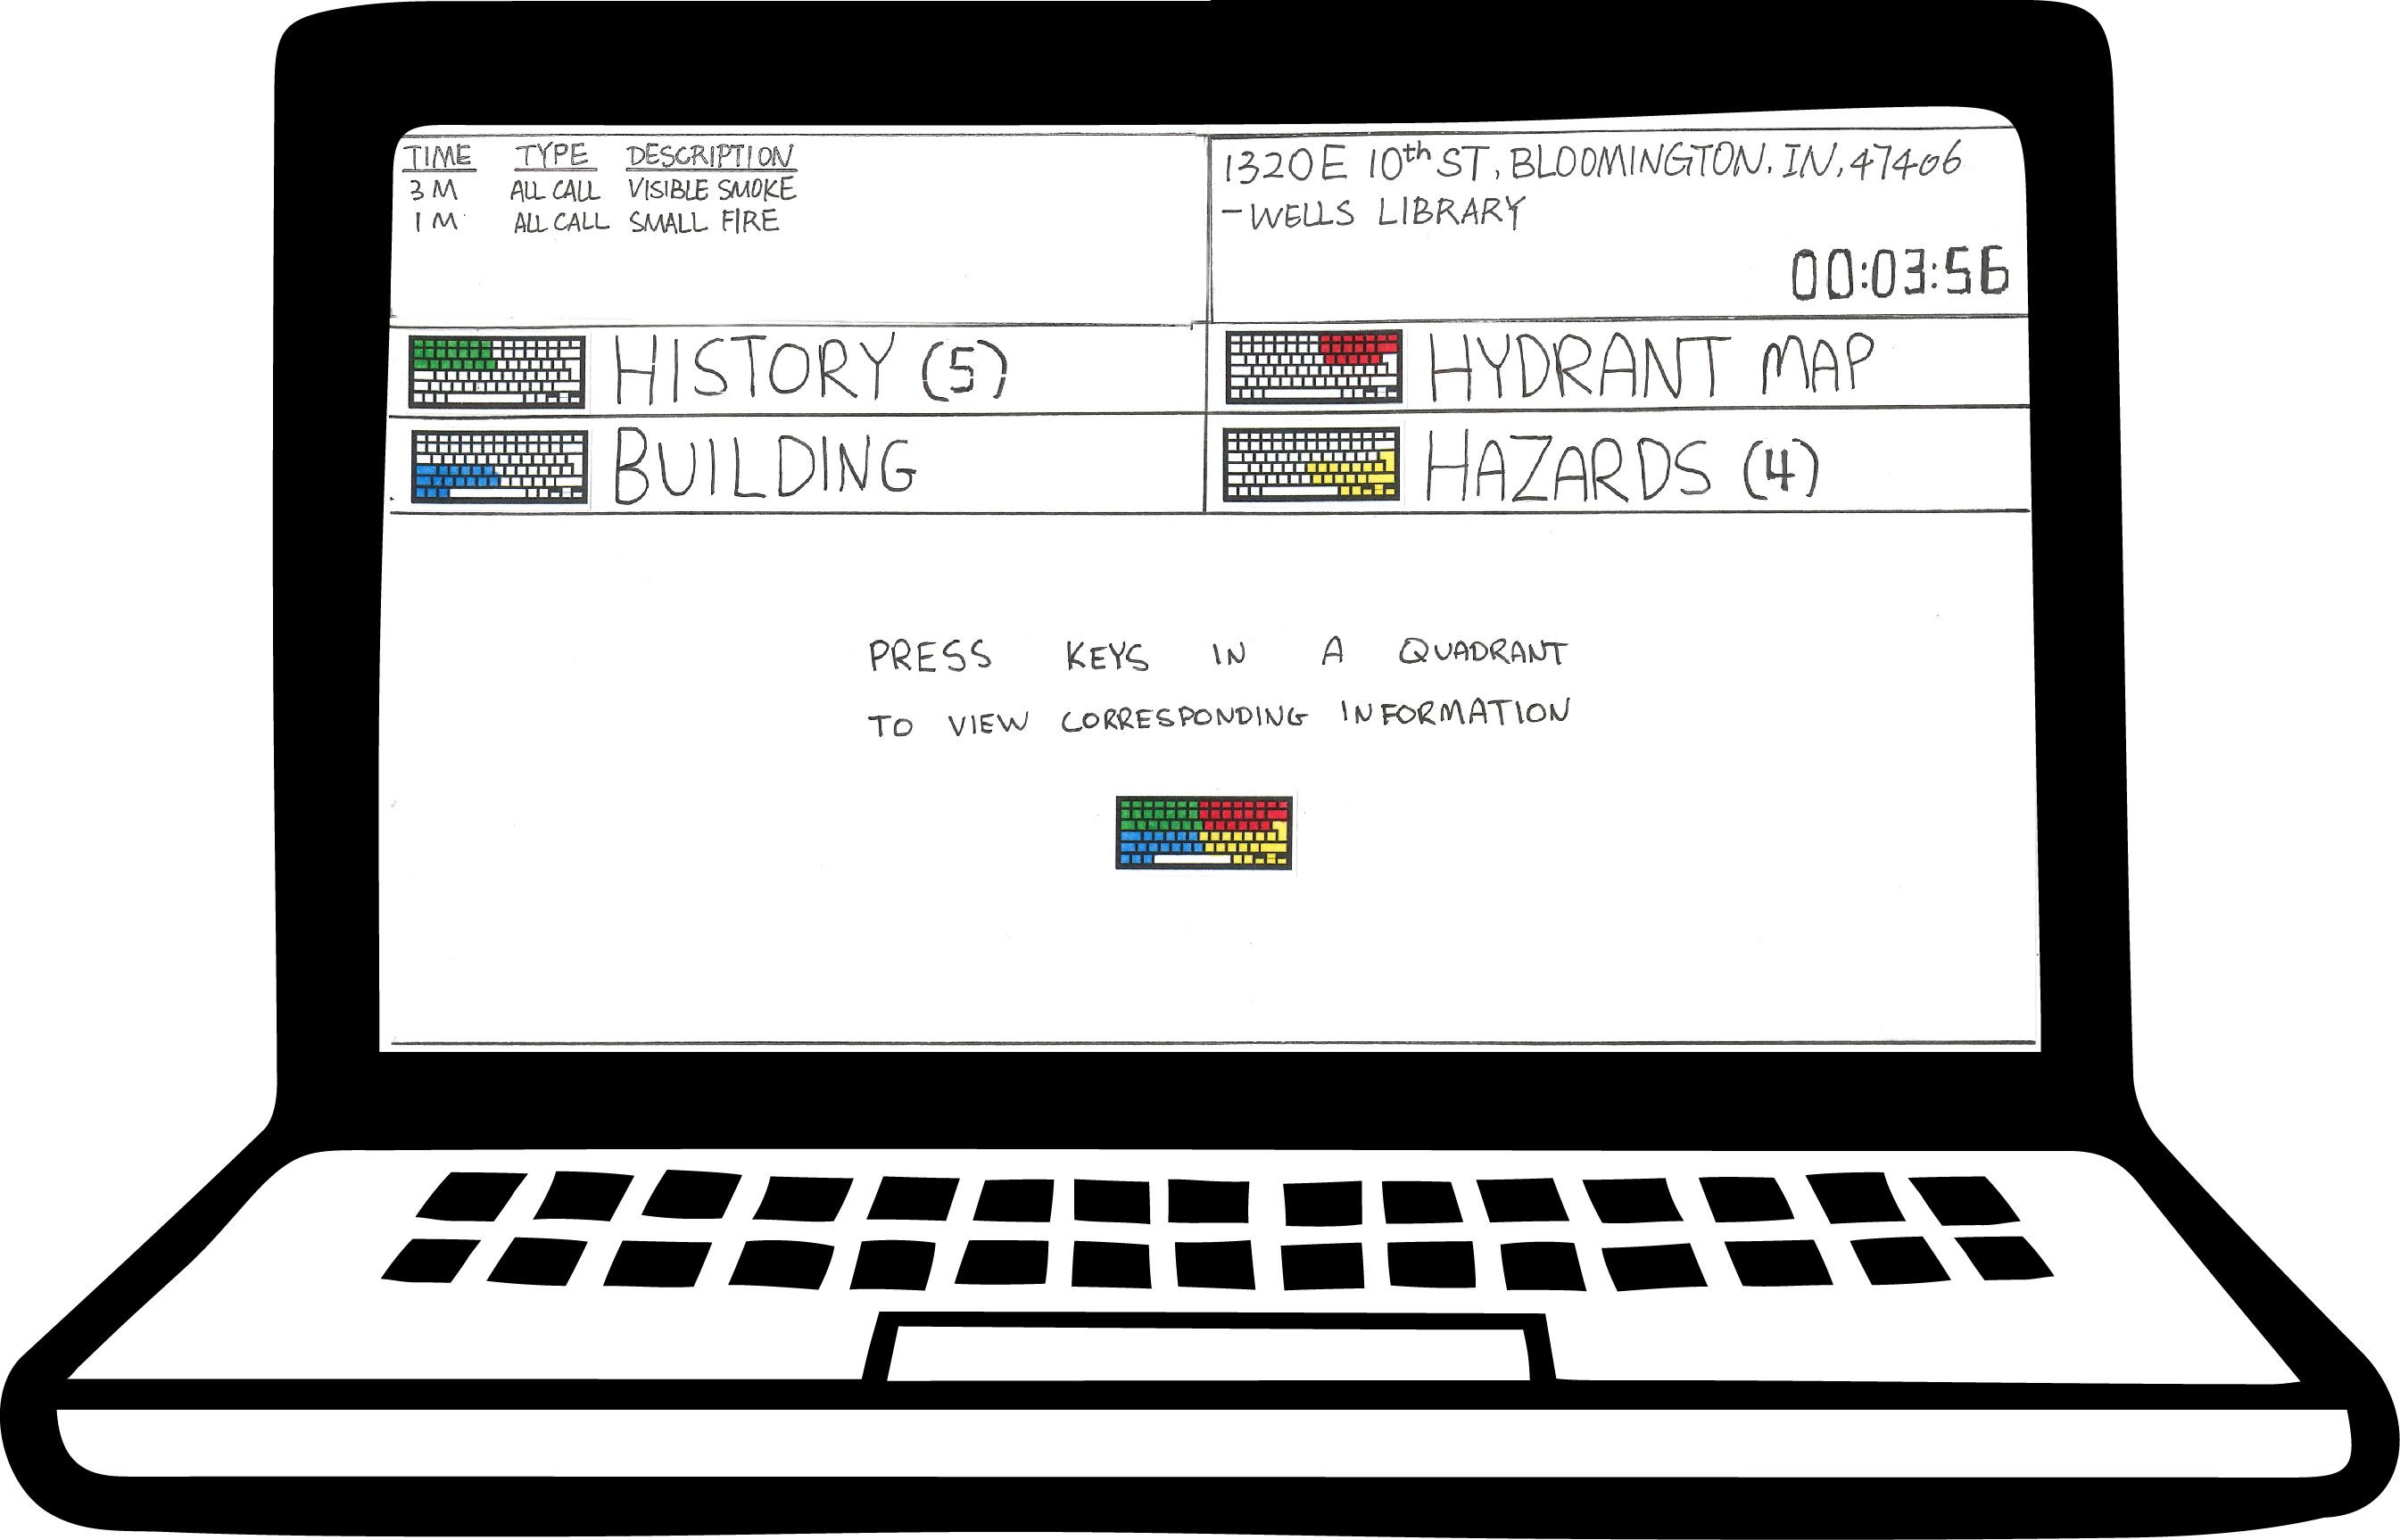 TIME TYPE DESCRIPTION
3 M ALL CALL VISIBLE SMOKE
1 M ALL CALL SMALL FIRE
1320 E 10th ST, BLOOMINGTON, IN, 47406
- WELLS LIBRARY
00:03:56
HISTORY (5)
HYDRANT MAP
BUILDING
HAZARDS (4)
PRESS KEYS IN A QUADRANT
TO VIEW CORRESPONDING INFORMATION